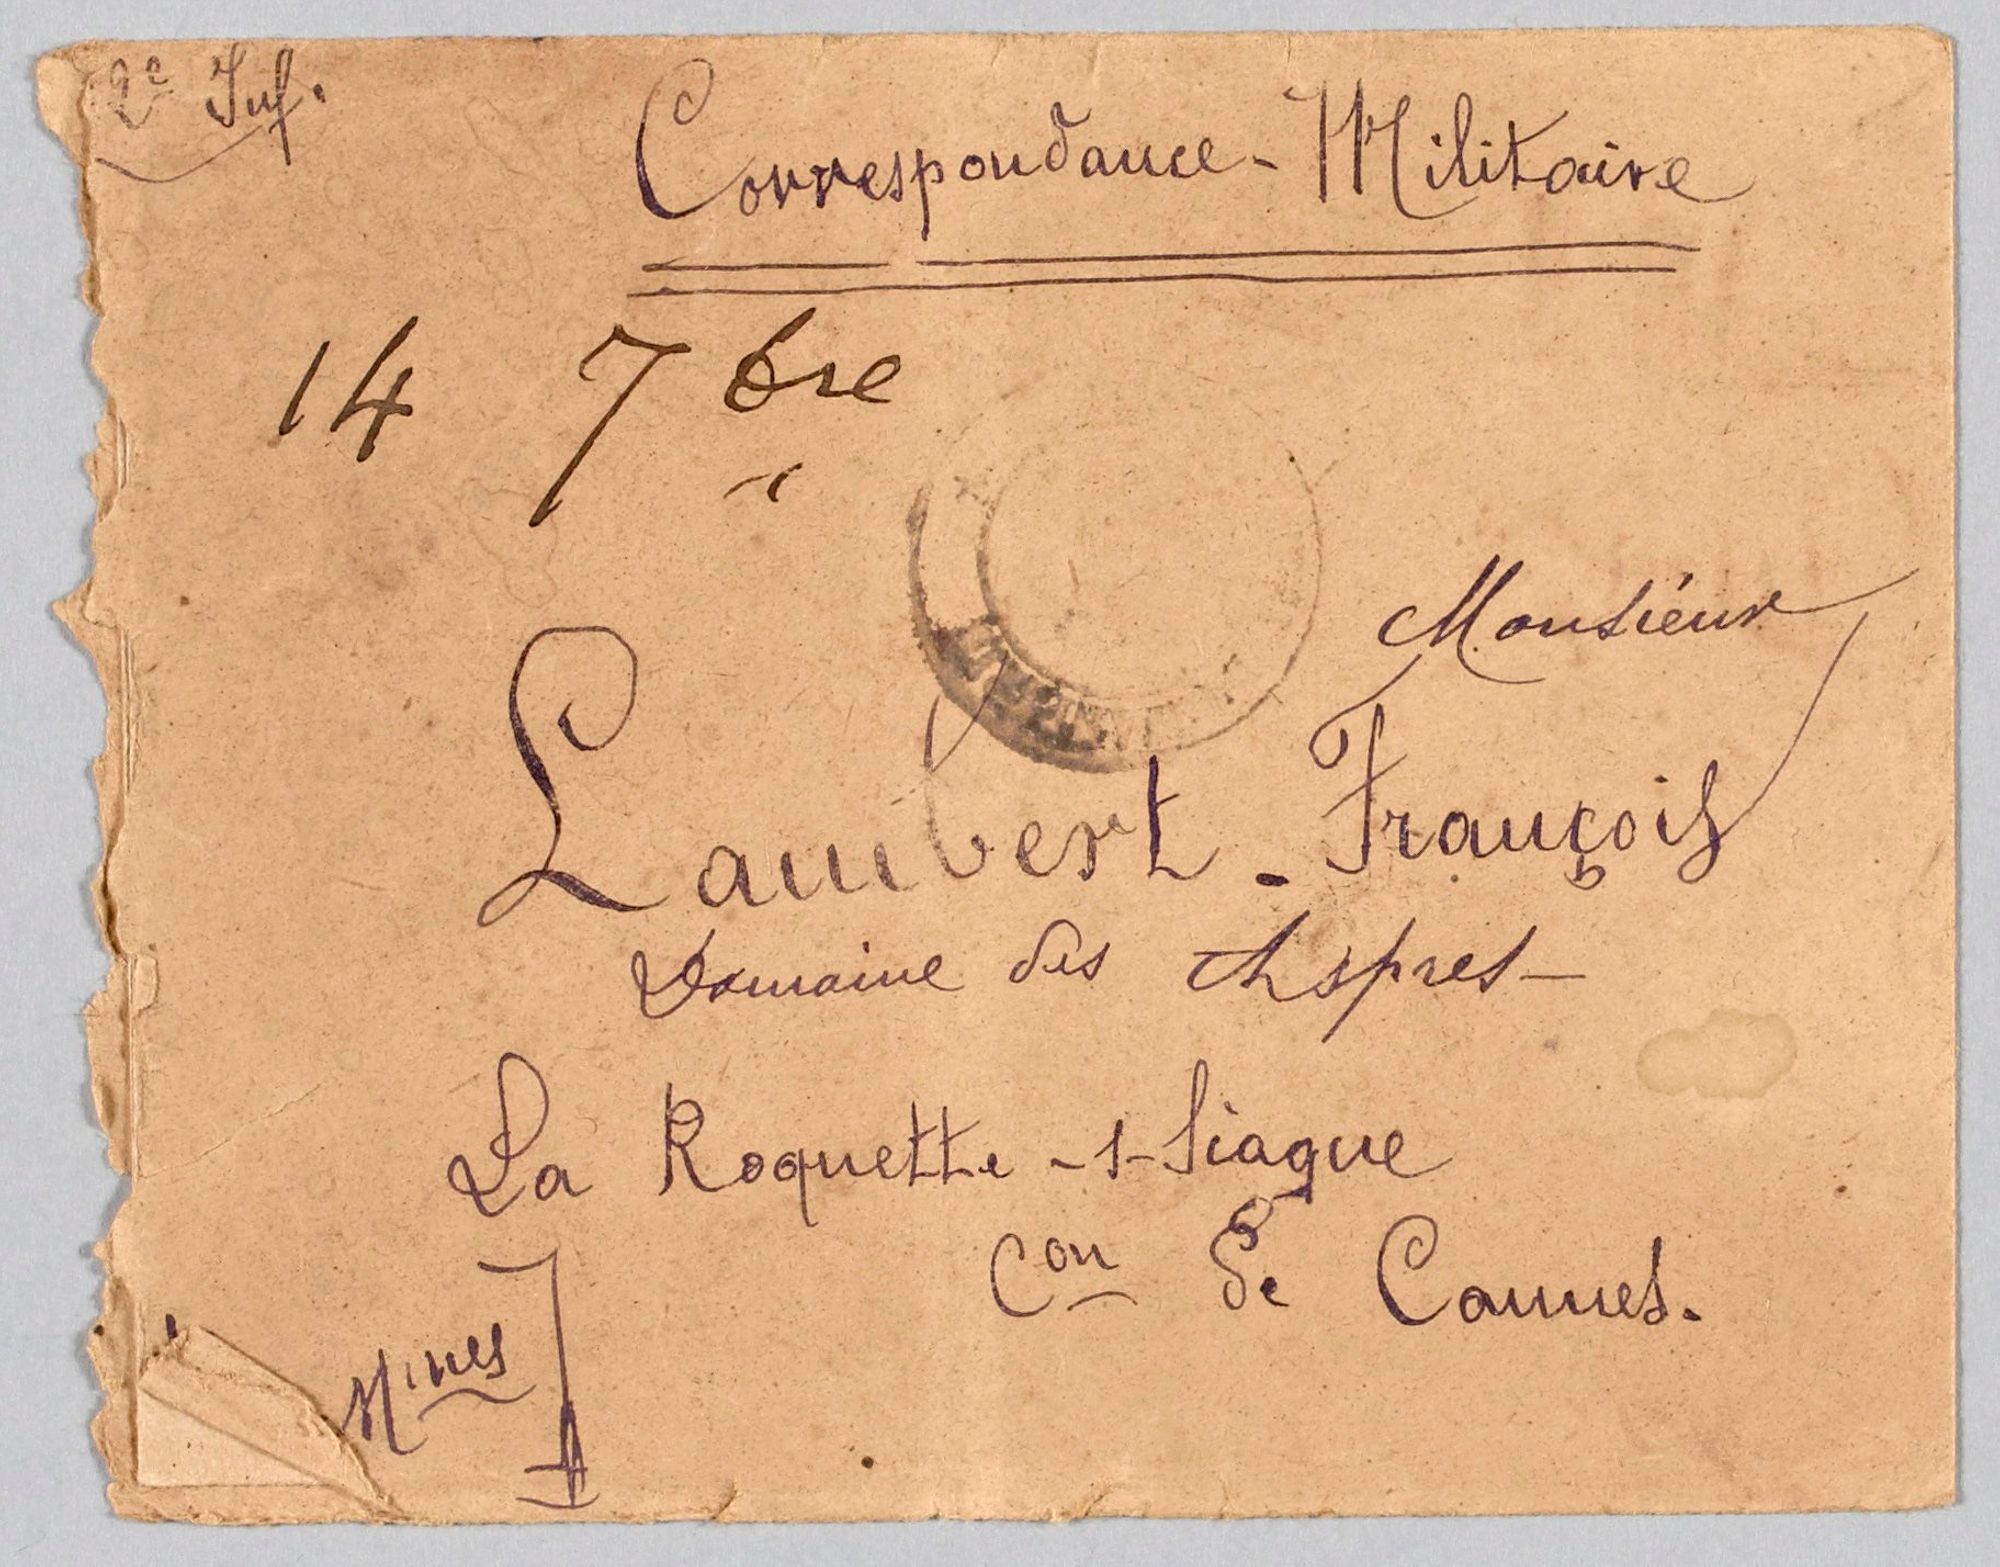 2e Inf.
Correspondance - Militaire
14 7bre
Monsieur
Lambert - François
Domaine des Aspres -
La Roquette - s - Siagne
Con de Cannes.